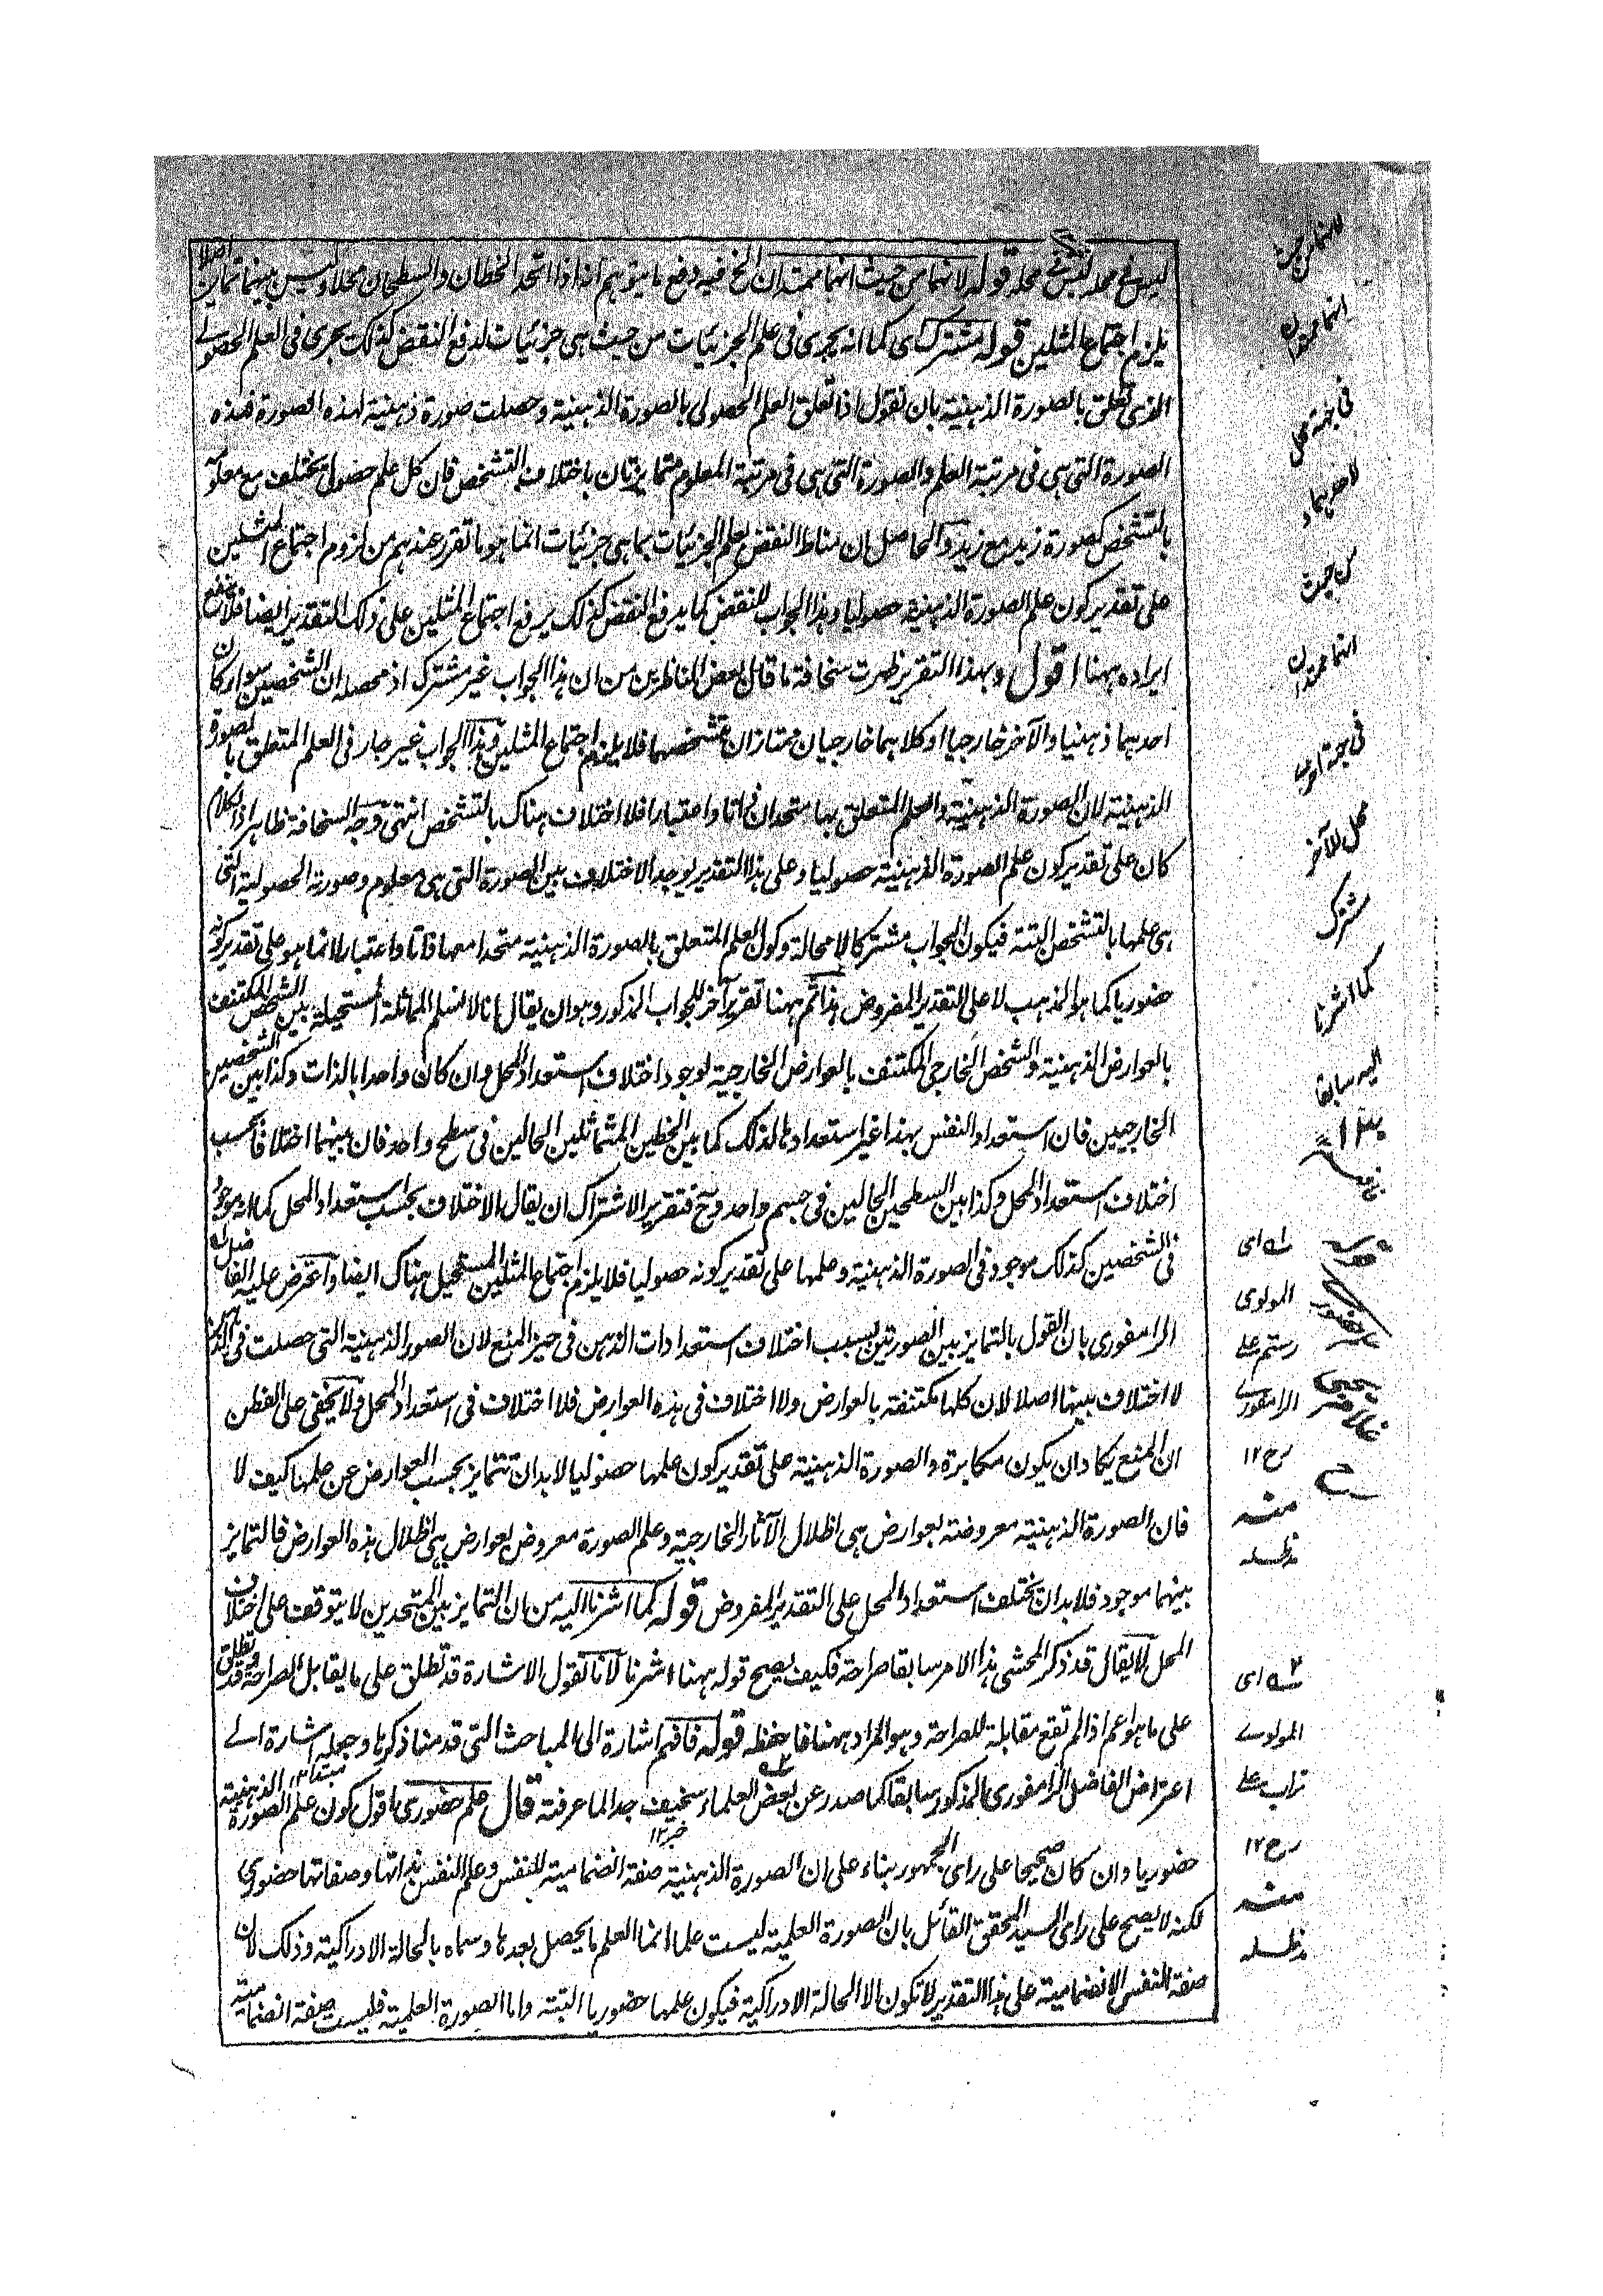 ليس في محله ليس في محله قوله لانهما من حيث انهما ممتدان الخ فيه دفع ما يتوهم انه اذا اتحد الخطان والسطحان محلا وليس بينهما تمايز اصلا
يلزم اجتماع المثلين قوله مشترك اى كما انه يجرى فى علم الجزئيات من حيث هى جزئيات لدفع النقض كذلك يجرى فى العلم الحصولے
الذى تعلق بالصورة الذهنية بان نقول اذا تعلق العلم الحصولى بالصورة الذهنية وحصلت صورة ذهنية لهذه الصورة فهذه
الصورة التى هى فى مرتبة العلم والصورة التى هى فى مرتبة المعلوم متمايزتان باختلاف التشخص فان كل علم حصولى يختلف مع معلومه
بالتشخص كصورة زيد مع زيد والحاصل ان مناط النقض بعلم الجزئيات بما هى جزئيات انما هو ما تقرر عندهم من لزوم اجتماع المثلين
على تقدير كون علم الصورة الذهنية حصوليا وهذا الجواب للنقض كما يدفع النقض كذلك يرفع اجتماع المثلين على ذلك التقدير ايضا فلا
ايراده ههنا اقول وبهذا التقرير ظهرت سخافة ما قال بعض الناظرين من ان هذا الجواب غير مشترك اذ محصله ان الشخصين سواء كان
احدهما ذهنيا والآخر خارجيا او كلاهما خارجيان ممتازان بتشخصهما فلا يلزم اجتماع المثلين وهذا الجواب غير جار فى العلم المتعلق بالصورة
الذهنية لان الصورة الذهنية والعلم المتعلق بها متحدان ذاتا واعتبارا فلا اختلاف هناك بالتشخص انتهى وجه السخافة ظاهر اذ الكلام
كان على تقدير كون علم الصورة الذهنية حصوليا وعلى هذا التقدير يوجد الاختلاف بين الصورة التى هى معلوم وصورة الحصولية التى
هى علمها بالتشخص البتة فيكون الجواب مشتركا لا محالة وكون العلم المتعلق بالصورة الذهنية متحدا معها ذاتا واعتبارا انما هو على تقدير كونه
حضوريا كما هو المذهب لا على التقدير المفروض هذا ثم ههنا تقرير آخر للجواب المذكور وهو ان يقال انا لا نسلم المماثلة المستحيلة بين الشخص المكتنف
بالعوارض الذهنية والشخص الخارجى المكتنف بالعوارض الخارجية لوجود اختلاف استعداد المحل وان كان واحدا بالذات وكذا بين الشخصين
الخارجيين فان استعداد النفس بهذا غير استعدادها لذلك كما بين الخطين المتماثلين الحالين فى سطح واحد فان بينهما اختلافا بحسب
اختلاف استعداد المحل وكذا بين السطحين الحالين فى جسم واحد وح فتقرير الاشتراك ان يقال الاختلاف بحسب استعداد المحل كما انه موجود
فى الشخصين كذلك موجود فى الصورة الذهنية وعلمها على تقدير كونه حصوليا فلا يلزم اجتماع المثلين المستحيل هناك ايضا واعترض عليه الفاضل
الرامفورى بان القول بالتمايز بين الصورتين بسبب اختلاف استعدادات الذهن فى حيز المنع لان الصور الذهنية التى حصلت فى الذهن
لا اختلاف بينها اصلا لان كلها مكتنفة بالعوارض ولا اختلاف فى هذه العوارض فلا اختلاف فى استعداد المحل ولا يخفى على الفطن
ان المنع يكاد ان يكون مكابرة والصورة الذهنية على تقدير كون علمها حصوليا لابد ان تتمايز بحسب العوارض عن علمها كيف لا
فان الصورة الذهنية معروضة بعوارض هى اظلال الآثار الخارجية وعلم الصورة معروض بعوارض هى اظلال هذه العوارض فالتمايز
بينهما موجود فلابد ان يختلف استعداد المحل على التقدير المفروض قوله كما اشرنا اليه من ان التمايز بين المتحدين لا يتوقف على اختلاف
المحل لا يقال قد ذكر المحشى هذا الامر سابقا صراحة فكيف يصح قوله ههنا اشرنا لانا نقول الاشارة قد تطلق على ما يقابل الصراحة وقد تطلق
على ما هو اعم اذا لم تقع مقابلة للصراحة وهو المراد ههنا فاحفظه قوله فافهم اشارة الى المباحث التى قد منا ذكرها وجعله اشارة الے
اعتراض الفاضل الرامفورى المذكور سابقا كما صدر عن بعض العلماء سخيف جدا لما عرفته قال علم حضورى اقول كون علم الصورة الذهنية
مبتدا ١٢
حضوريا وان كان صحيحا على راى الجمهور بناء على ان الصورة الذهنية صفة انضمامية للنفس وعلم النفس بذاتها وصفاتها حضورى
خبر ١٢
لكنه لا يصح على راى السيد المحقق القائل بان الصورة العلمية ليست علما انما العلم ما يحصل بعدها وسماه بالحالة الادراكية وذلك لان
صفة النفس الانضمامية على هذا التقدير لا تكون الا الحالة الادراكية فيكون علمها حضوريا البتة واما الصورة العلمية فليست صفة انضمامية
لانهما من حيث
انهما ممتدان
فى جهة محل
لاحدهما و
من حيث
انهما ممتدان
فى جهة اخرى
محل للآخر
مشترك
كما اشرنا
اليه سابقا
له اى
المولوى
رستم على
الرامفورے
رح ١٢
منه
مدظله
٢ه اى
المولوے
تراب على
رح ١٢
منه
مدظله